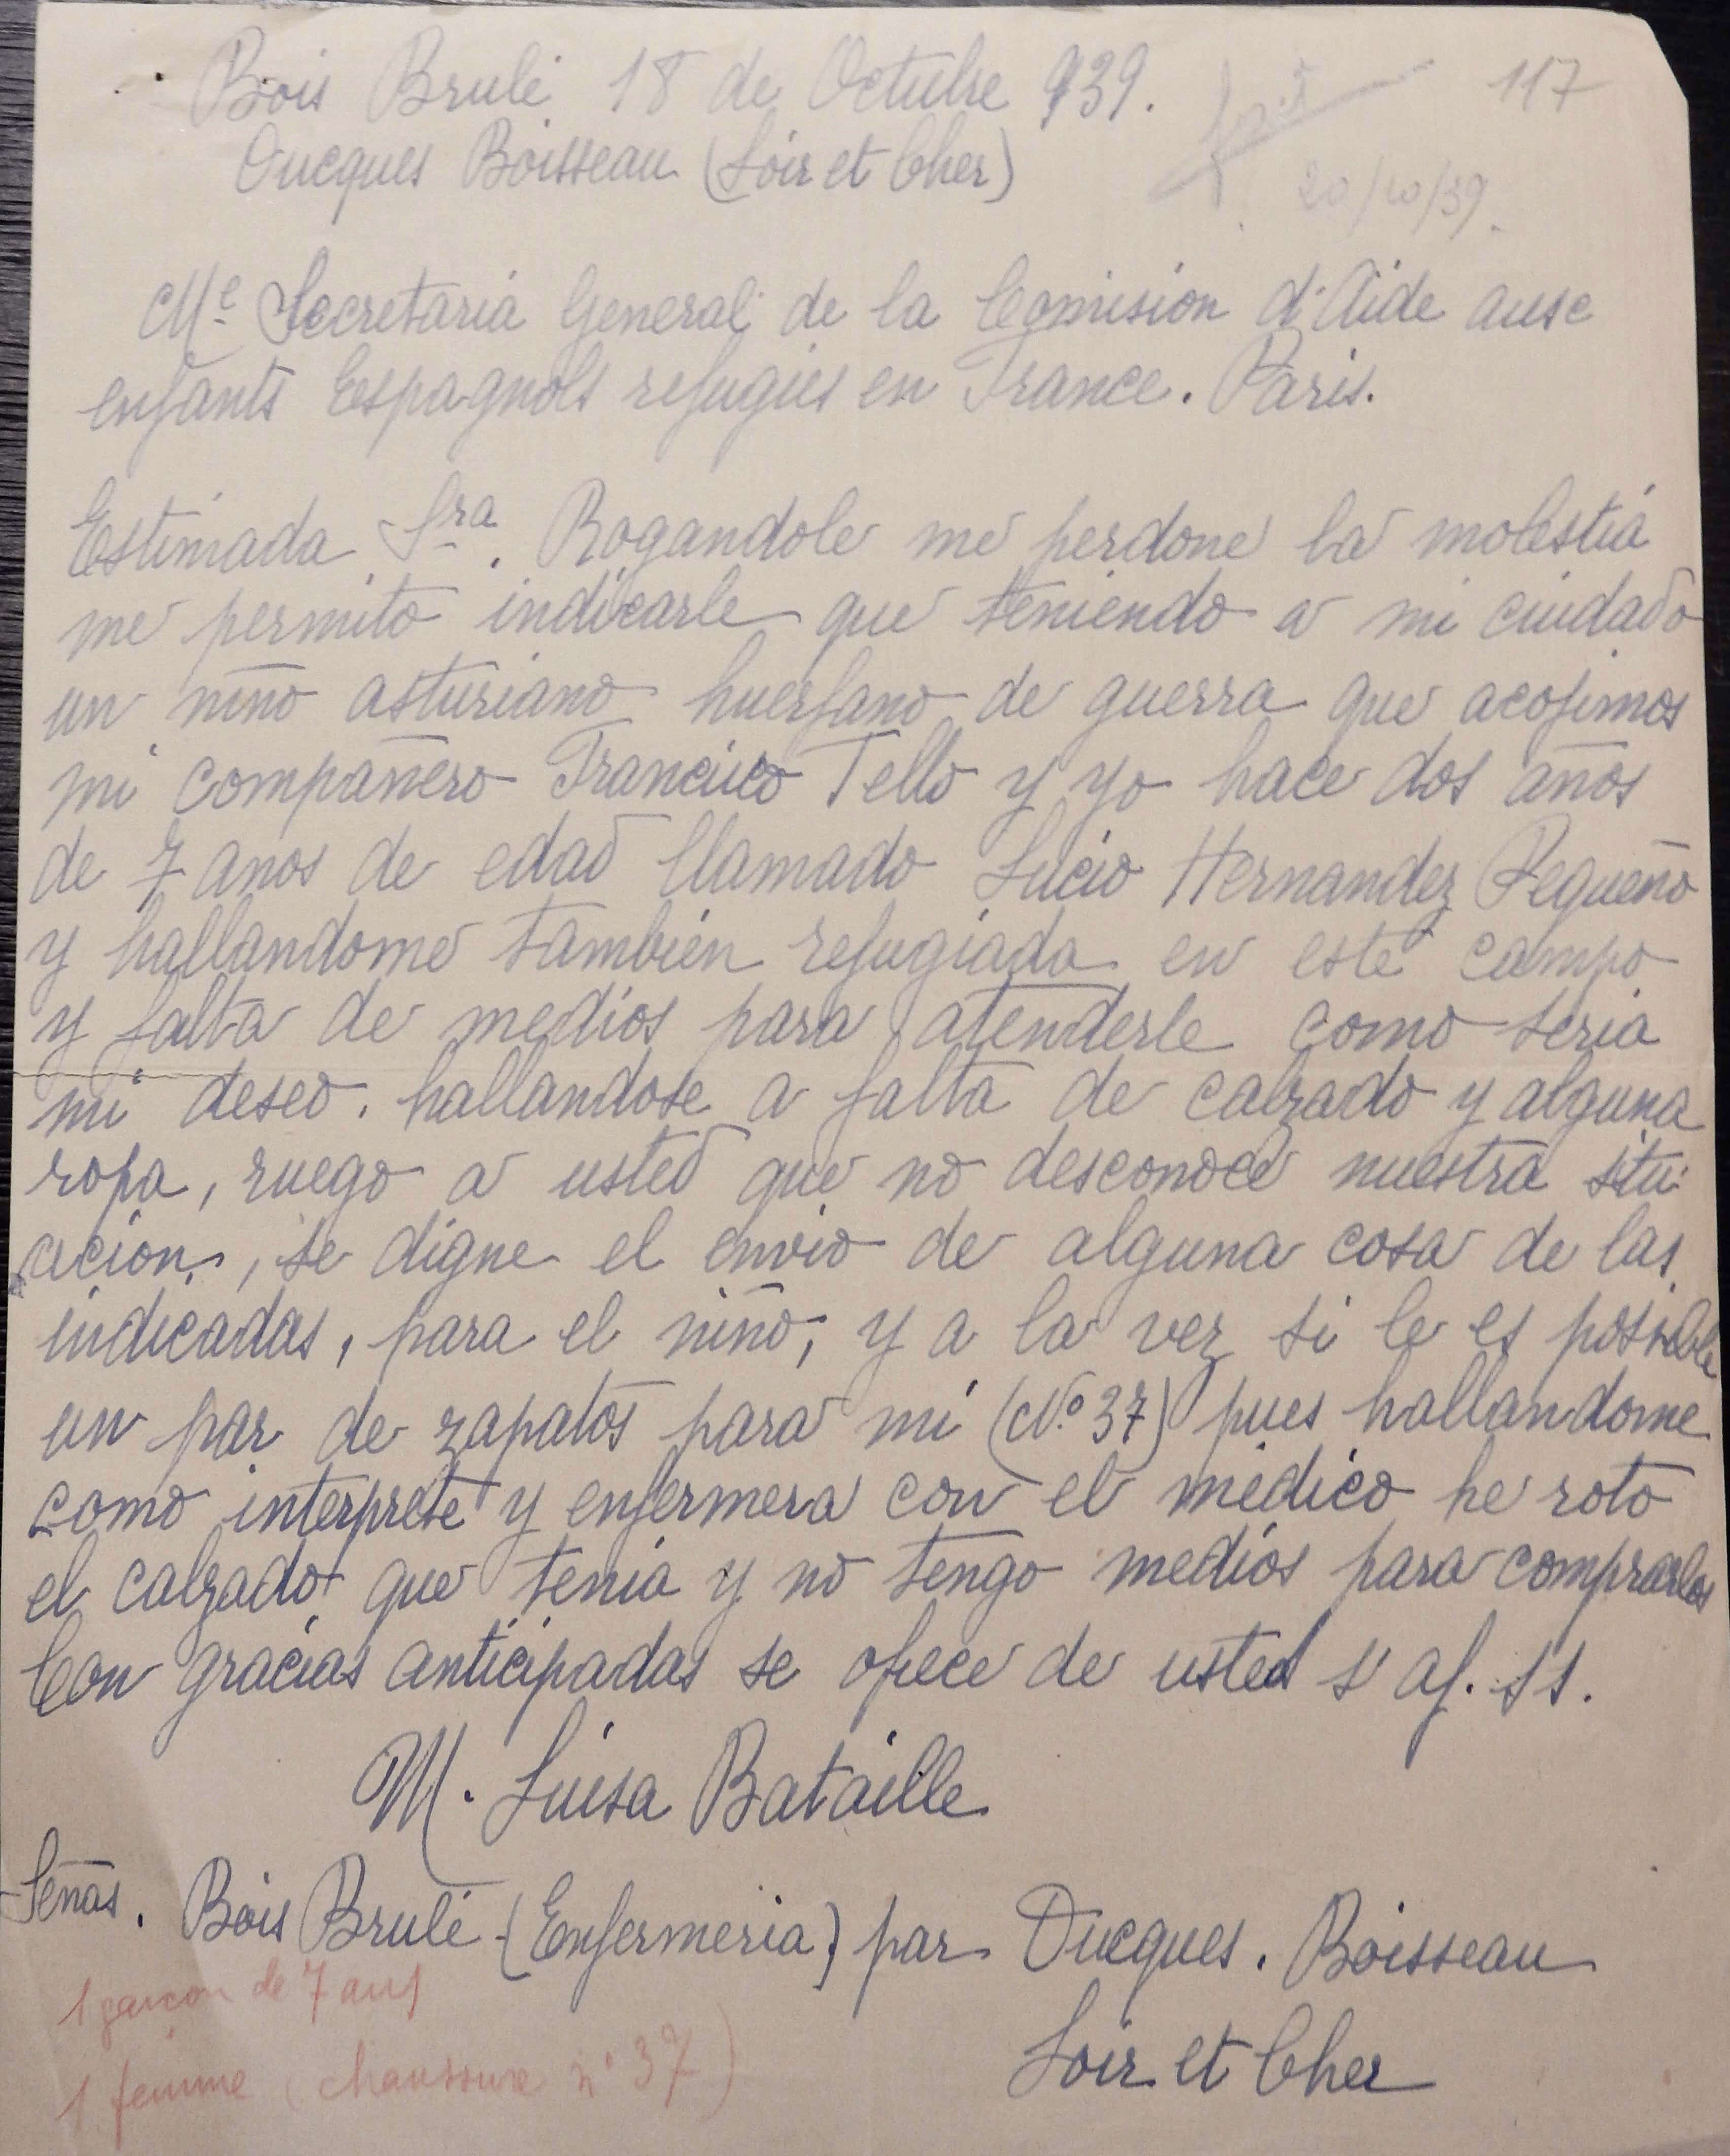 Bois Brulé 18 de Octubre 939.
117
Oucques Boisseau (Loir et Cher)
20/10/39.
Me Secretaria General de la Comision d'Aide ause
enfants Espagnols refugies en France. Paris.
Estimada Sra. Rogandole me perdone la molestia
me permito indicarle que teniendo a mi cuidado
un niño asturiano huerfano de guerra que acojimos
mi compañero Francisco Tello y yo hace dos años
de 7 anos de edad llamado Lucio Hernandez Pequeño
y hallandome tambien refugiada en este campo
y falta de medios para atenderle como seria
mi deseo. hallandose a falta de calzado y alguna
ropa, ruego a usted que no desconoce nuestra situ-
acion, se digne el envio de alguna cosa de las
indicadas, para el niño, y a la vez si le es posible
un par de zapatos para mi (No. 37) pues hallandome
como interprete y enfermera con el medico he roto
el calzado que tenia y no tengo medios para comprarlos
Con gracias anticipadas se ofece de usted s af. s s.
M. Luisa Bataille
Señas. Bois Brulé (Enfermeria) par Oucques. Boisseau
Loir et Cher
1 garçon de 7 ans
1 femme (chaussure n° 37)